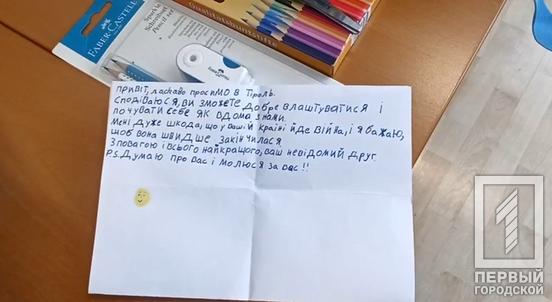 FABER-CASTELL
Qualitätsbuntstifte
ПРИВІТ, ласкаво просимо в Тіроль.
Сподіваюся, ви зможете добре влаштуватися і
почувати себе як вдома з нами.
Мені дуже шкода, що у вашій країні йде війна, і я бажаю,
щоб вона швидше закінчилася.
З повагою і всього найкращого, ваш невідомий друг.
P.S. Думаю про вас і молюся за вас!!
ПЕРВЫЙ
ГОРОДСКОЙ